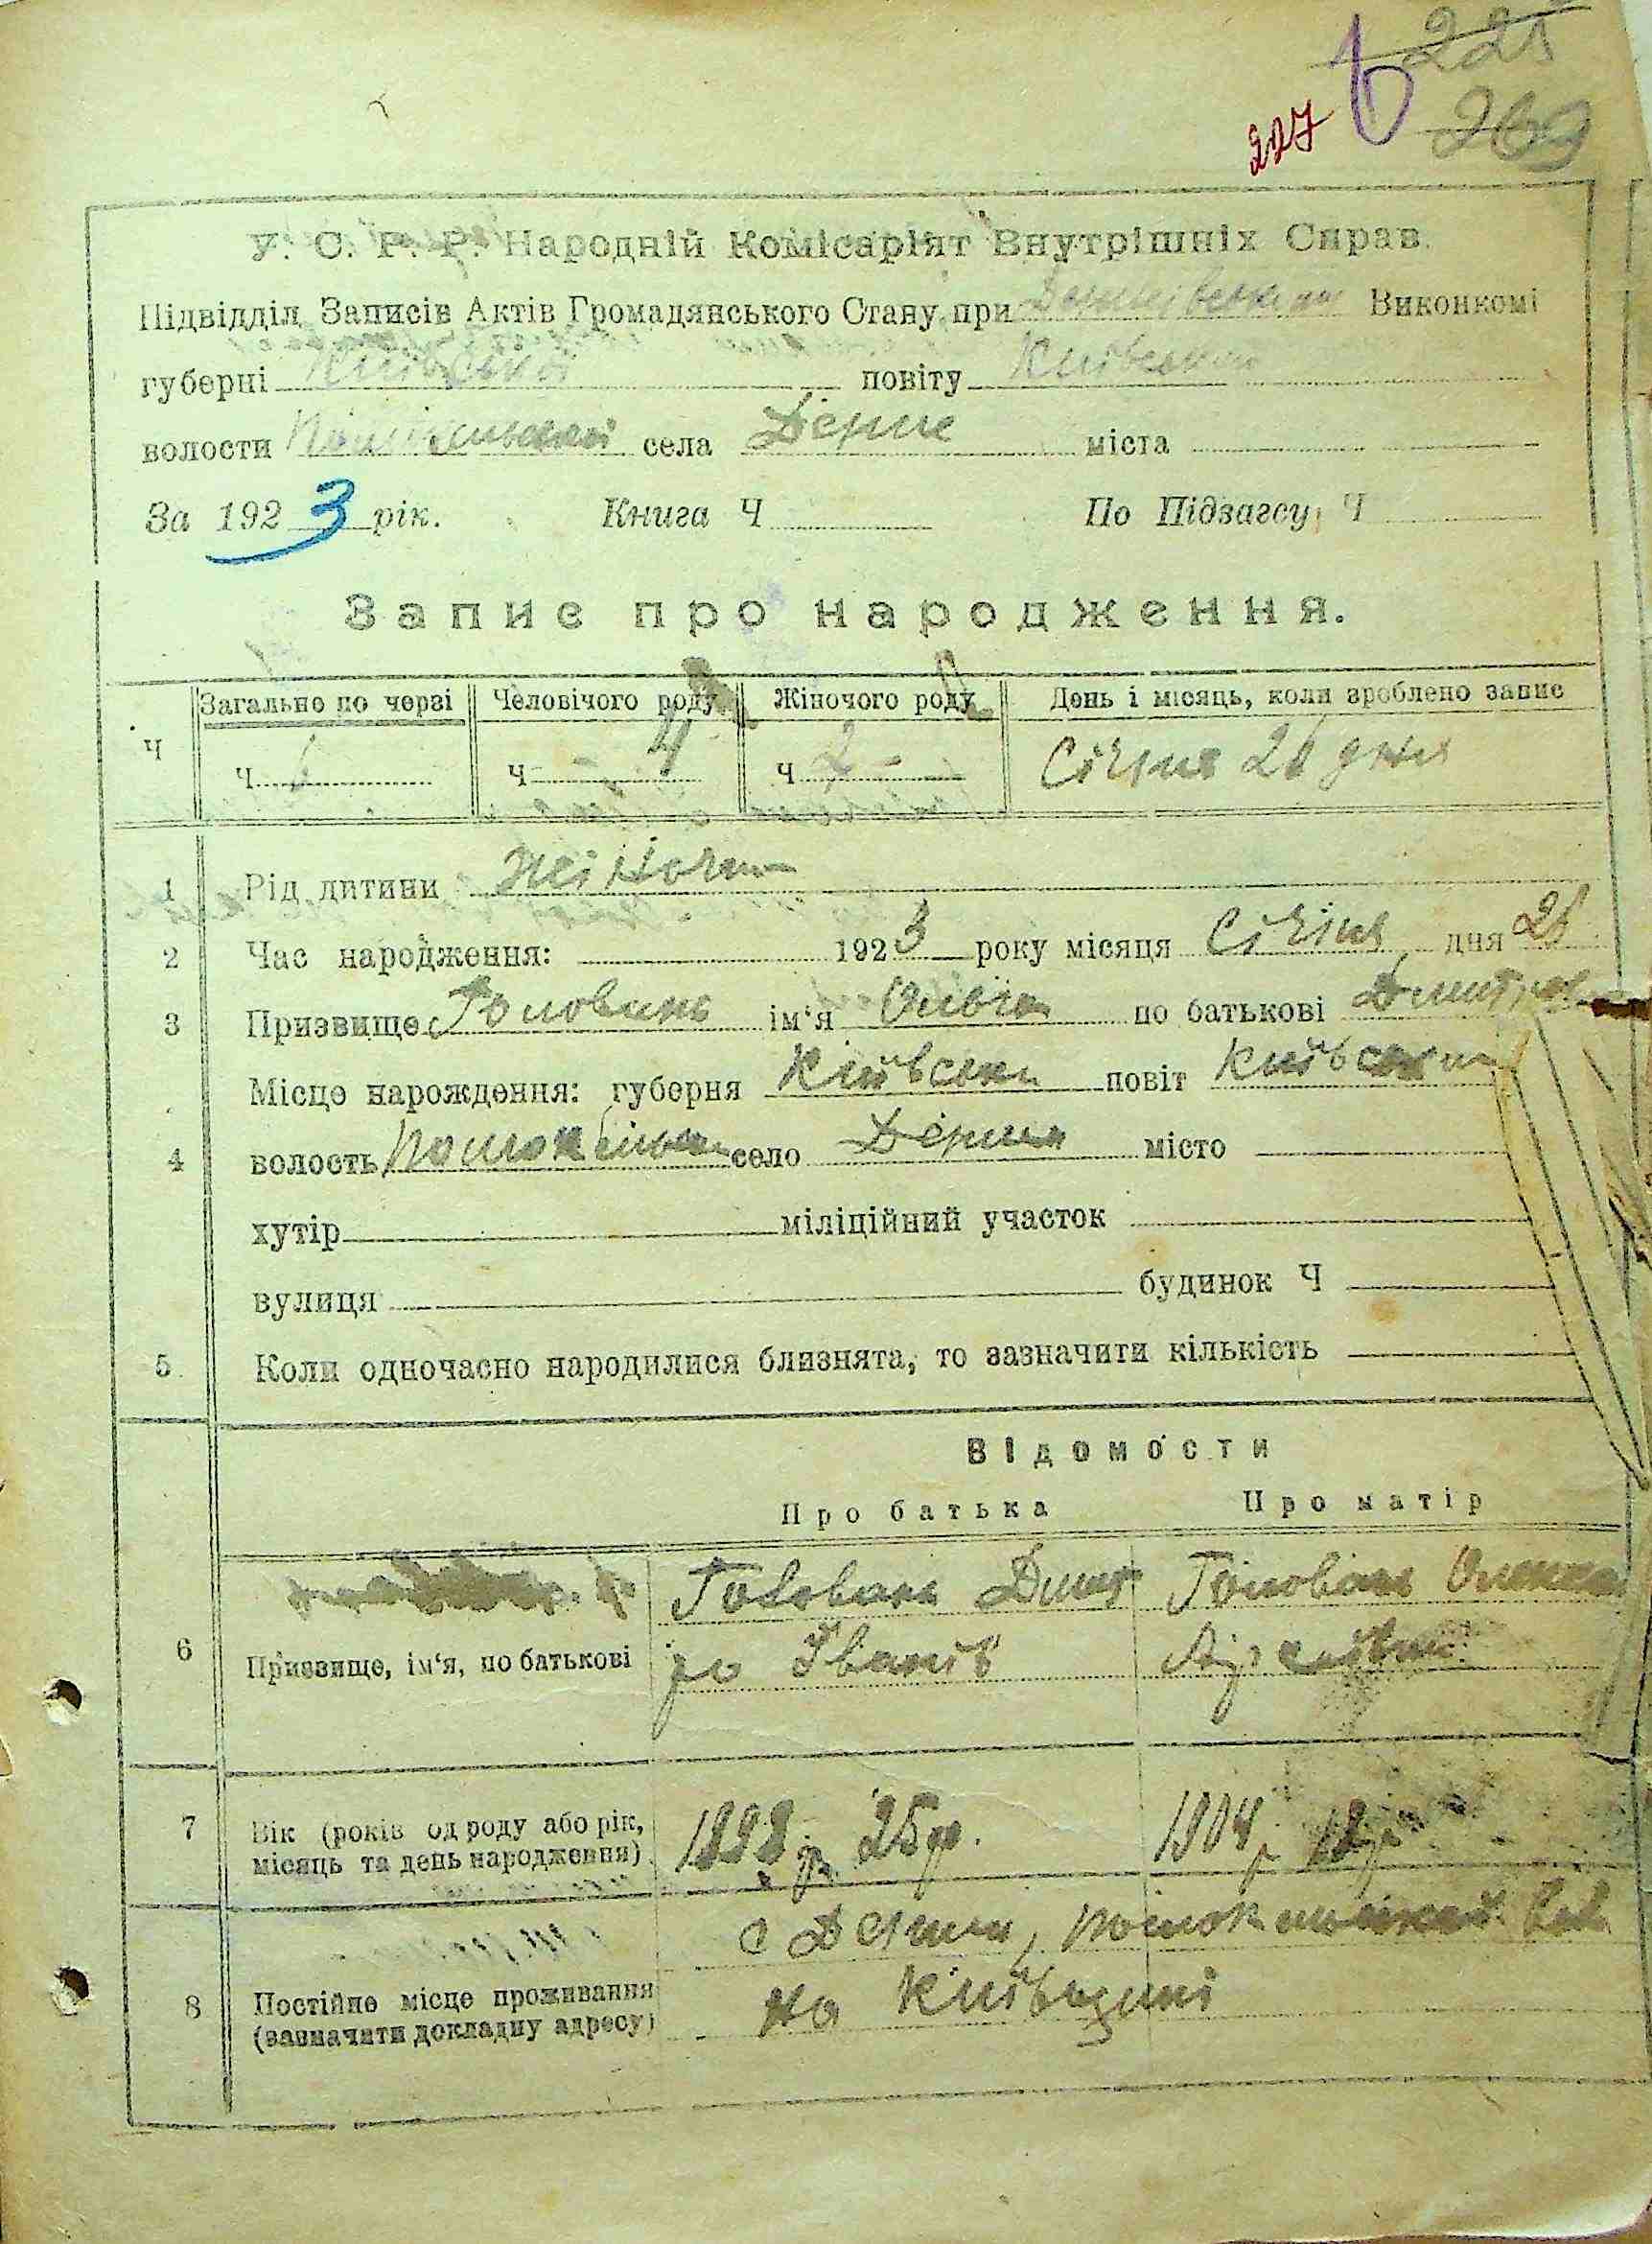 225
227
269
У. С. Р. Р. Народній Комісаріят Внутрішніх Справ.
Підвідділ Записів Актів Громадянського Стану при Виконкомі
губерні Київської повіту Київського
волости села Дерно міста
За 1923 рік. Книга Ч По Підзагсу Ч
Запис про народження.
Загально по черзі Человічого роду Жіночого роду День і місяць, коли зроблено запис
Ч Ч 6 Ч 4 Ч 2 Січня 26 дня
1 Рід дитини жіноча
2 Час народження: 1923 року місяця Січня дня
3 Призвище Головань ім'я по батькові
Місце нарождення: губерня Київська повіт Київський
4 волость село місто
хутір міліційний участок
вулиця будинок Ч
5 Коли одночасно народилися близнята, то зазначити кількість
Відомости
Про батька Про матір
Головань Дмит Головань
6 Призвище, ім'я, по батькові ро Іванів
7 Вік (років од роду або рік, місяць та день народження) 1898 р. 25 р. 1904 р
с
8 Постійне місце проживання (зазначити докладну адресу) на Київщині